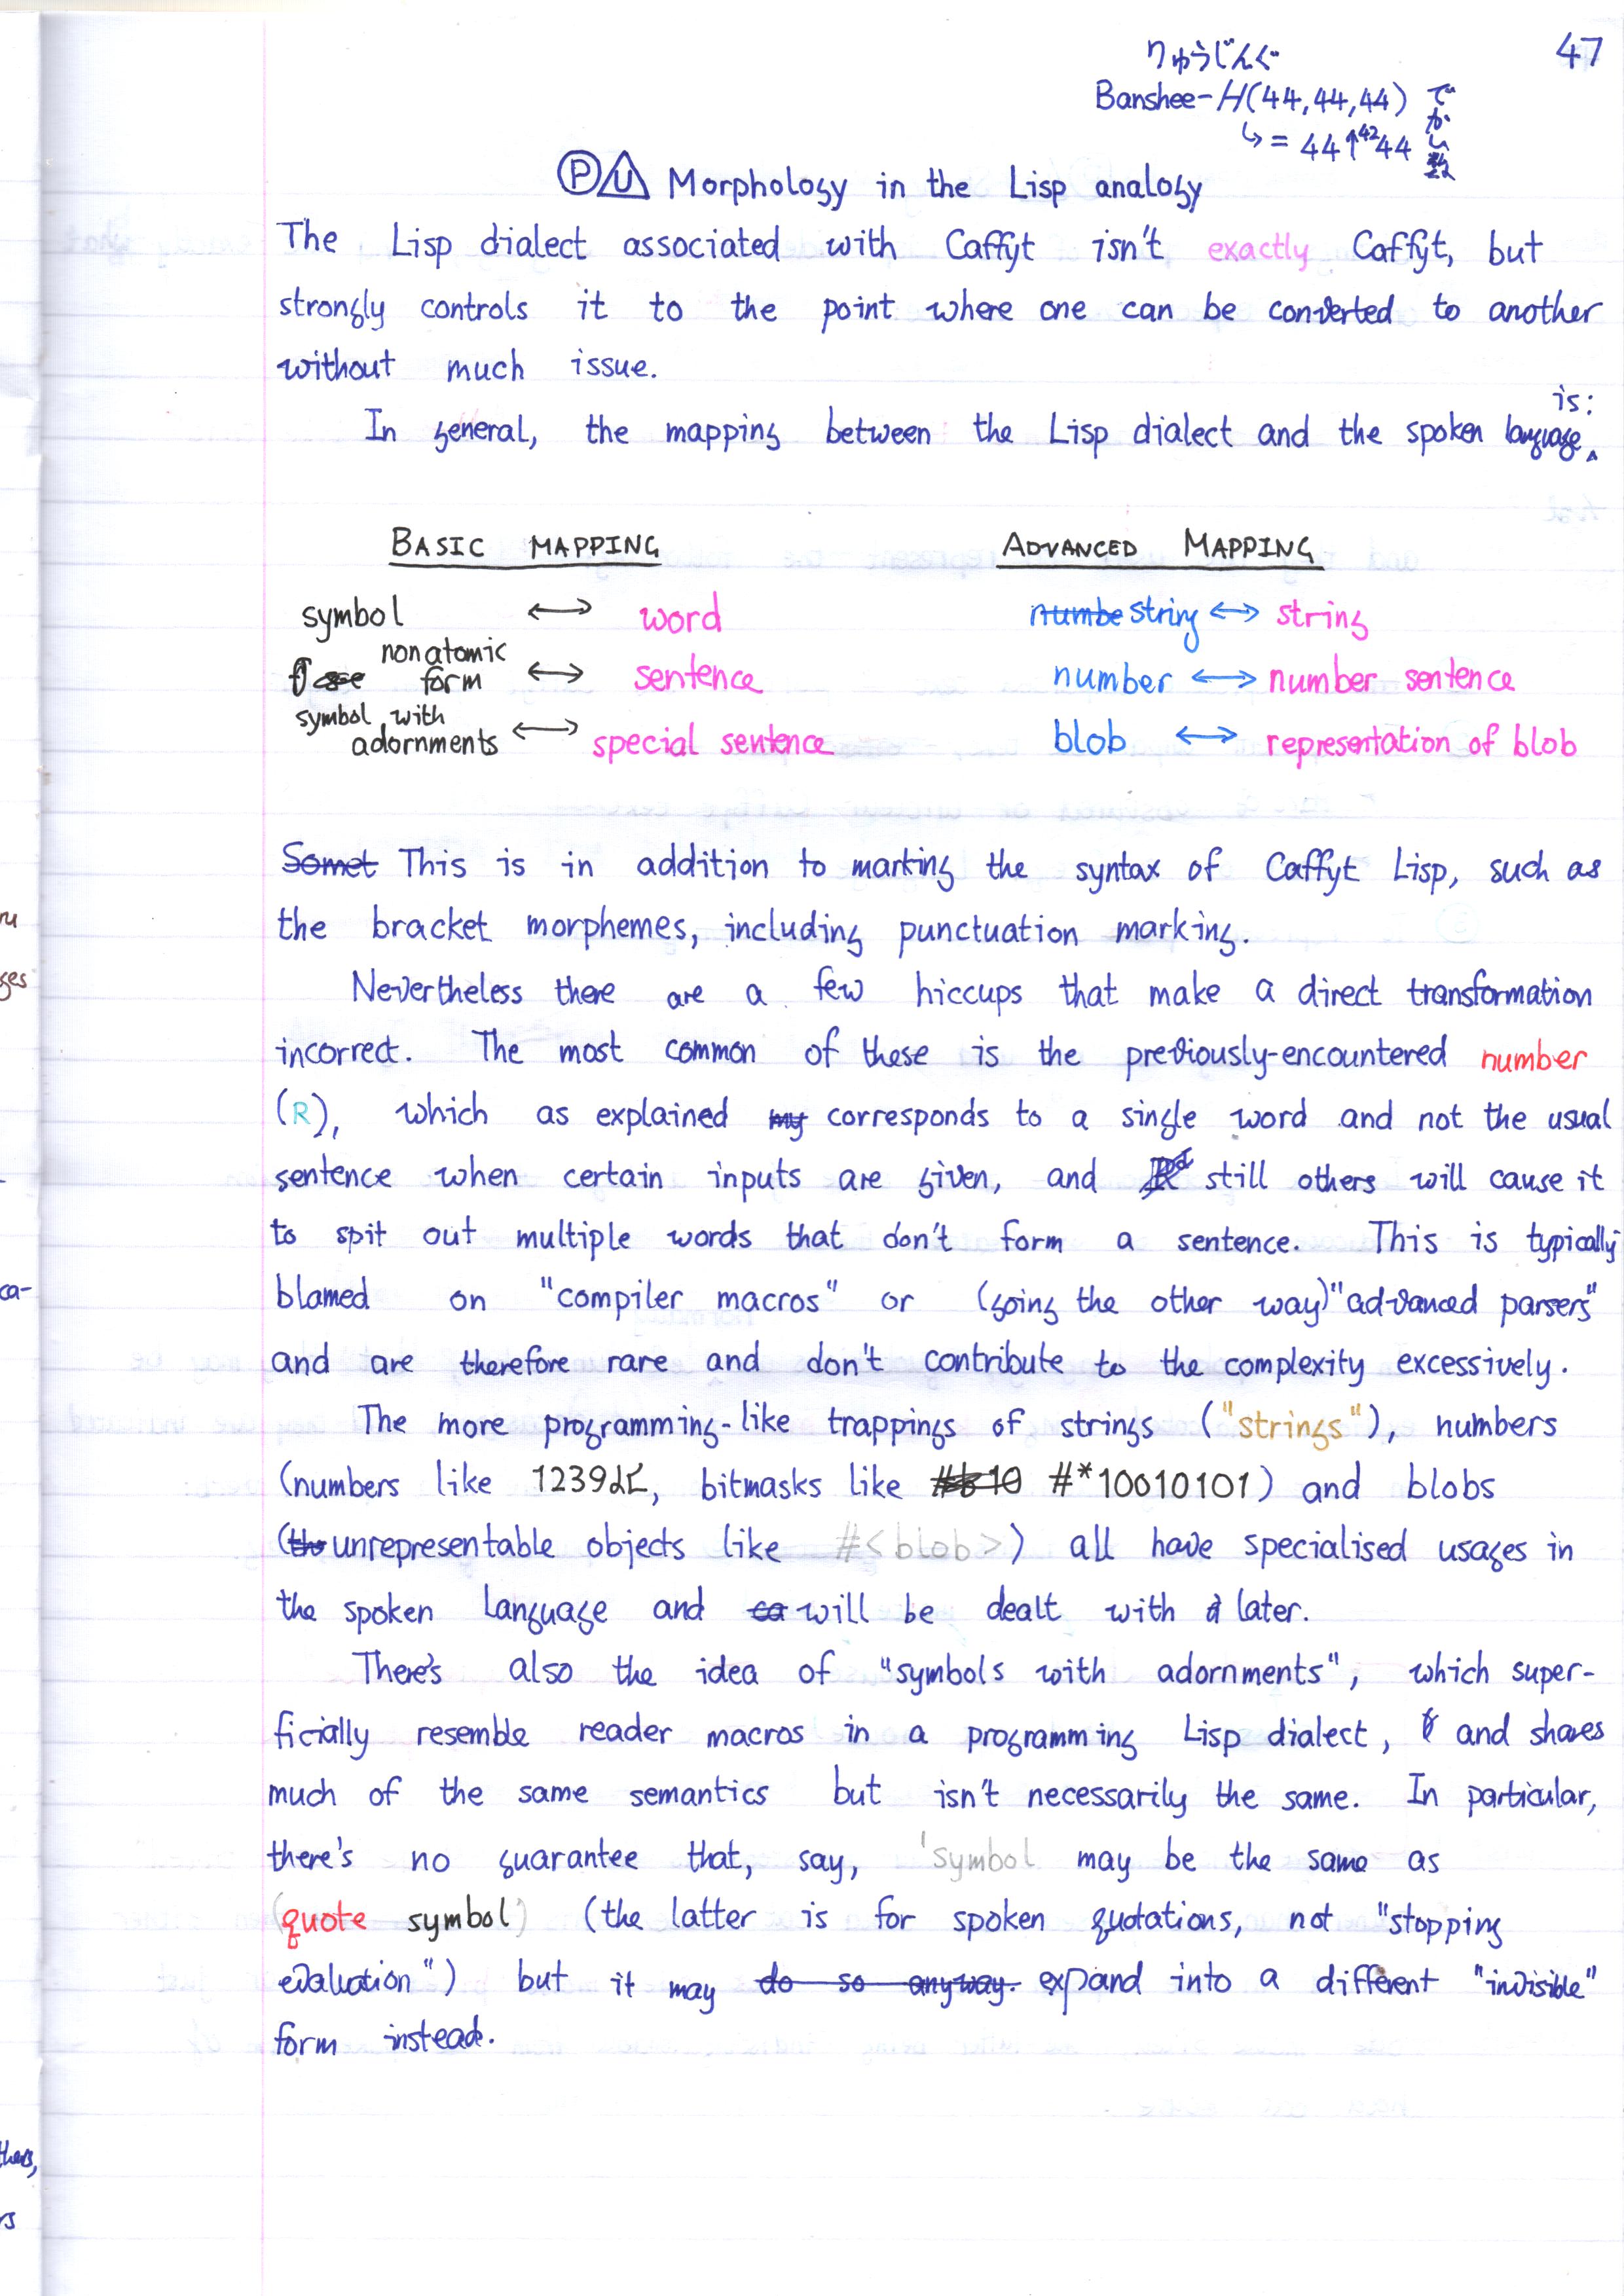 47
りゅうじんぐ
Banshee-H(44,44,44)
↳ = 44↑⁴²44
でかい数
Ⓟ U Morphology in the Lisp analogy
The Lisp dialect associated with Caffyt isn't exactly Caffyt, but
strongly controls it to the point where one can be converted to another
without much issue.
In general, the mapping between the Lisp dialect and the spoken language is:
BASIC MAPPING
symbol ↔ word
nonatomic form ↔ sentence
symbol with adornments ↔ special sentence
ADVANCED MAPPING
numbe string ↔ string
number ↔ number sentence
blob ↔ representation of blob
Somet This is in addition to marking the syntax of Caffyt Lisp, such as
the bracket morphemes, including punctuation marking.
Nevertheless there are a few hiccups that make a direct transformation
incorrect. The most common of these is the previously-encountered number
(R), which as explained my corresponds to a single word and not the usual
sentence when certain inputs are given, and still others will cause it
to spit out multiple words that don't form a sentence. This is typically
blamed on "compiler macros" or (going the other way) "advanced parsers"
and are therefore rare and don't contribute to the complexity excessively.
The more programming-like trappings of strings ("strings"), numbers
(numbers like 1239, bitmasks like #b10 #*10010101) and blobs
(the unrepresentable objects like #<blob>) all have specialised usages in
the spoken language and ca will be dealt with later.
There's also the idea of "symbols with adornments", which super-
ficially resemble reader macros in a programming Lisp dialect, and shares
much of the same semantics but isn't necessarily the same. In particular,
there's no guarantee that, say, 'symbol may be the same as
(quote symbol) (the latter is for spoken quotations, not "stopping
evaluation") but it may do so anyway. expand into a different "invisible"
form instead.